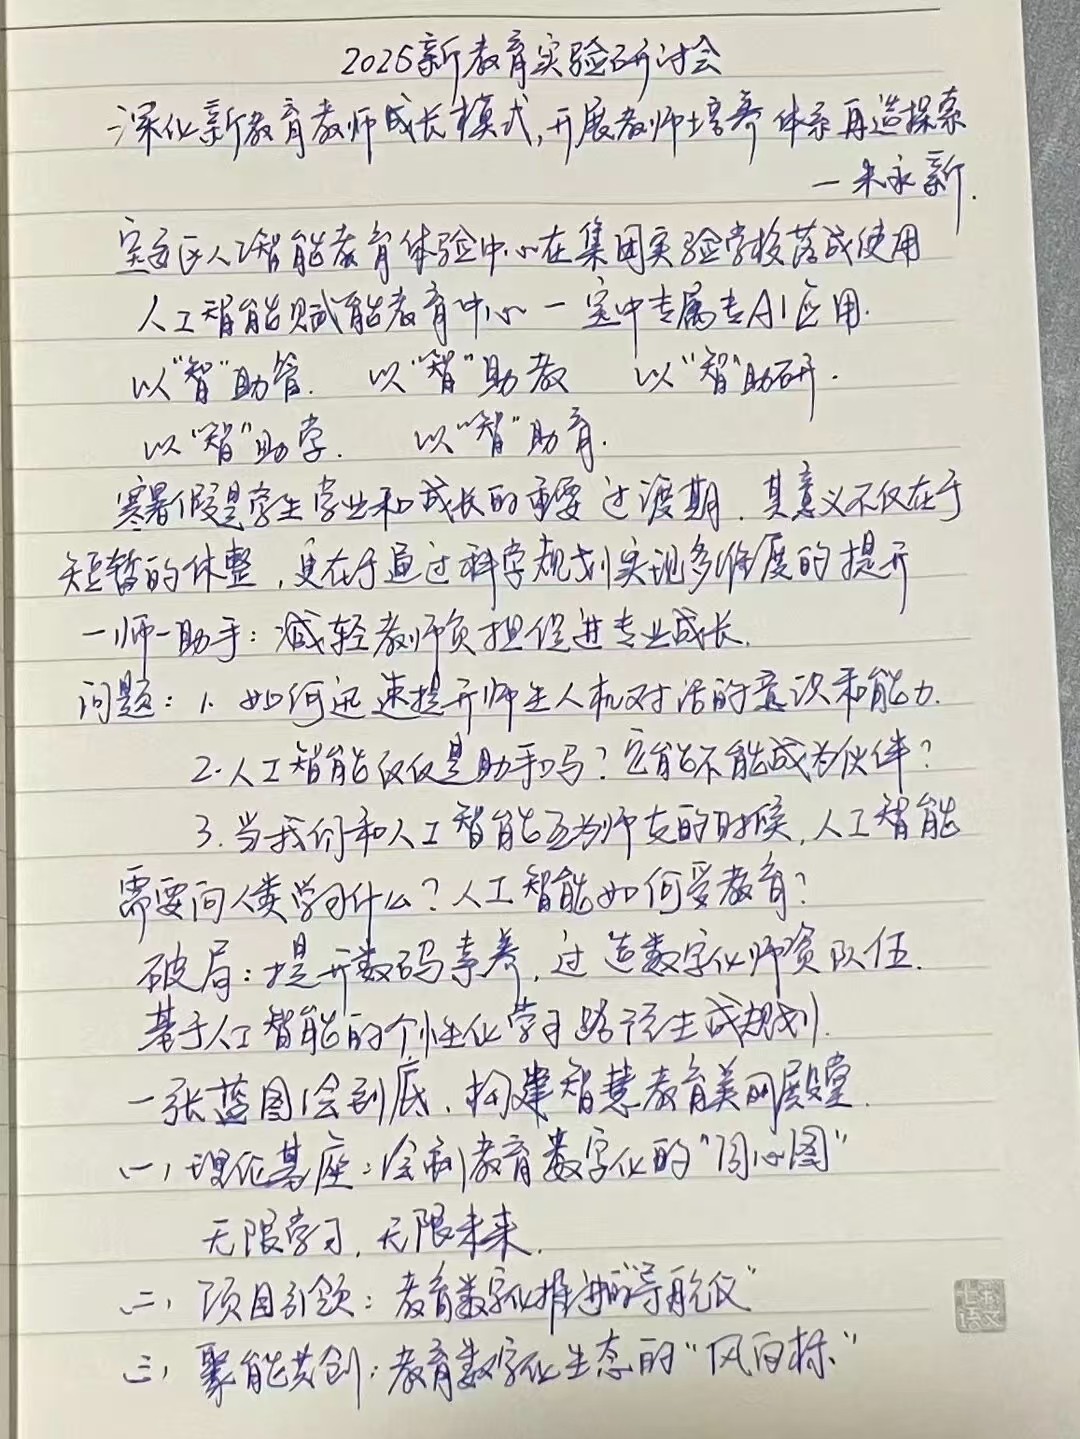 2025新教育实验研讨会
深化新教育教师成长模式,开展教师培养体系再造探索
—朱永新.
宝应区人工智能教育体验中心在集团实验学校落成使用
人工智能赋能教育中心—宝中专属专AI应用.
以"智"助管. 以"智"助教 以"智"助研.
以"智"助学. 以"智"助育.
寒暑假是学生学业和成长的重要过渡期.其意义不仅在于
短暂的休整,更在于通过科学规划实现多维度的提升
一师一助手:减轻教师负担促进专业成长.
问题:1.如何迅速提升师生人机对话的意识和能力.
2.人工智能仅仅是助手吗?它能不能成为伙伴?
3.当我们和人工智能互为师友的时候,人工智能
需要向人类学习什么?人工智能如何受教育?
破局:提升数码素养,过造数字化师资队伍.
基于人工智能的个性化学习路径生成规划.
一张蓝图绘到底.构建智慧教育美的殿堂.
(一)理论基座:绘制教育数字化的"同心图"
无限学习,无限未来.
(二)项目引领:教育数字化推进的"导航仪"
(三)聚能共创:教育数字化生态的"风向标"
七彩
语文